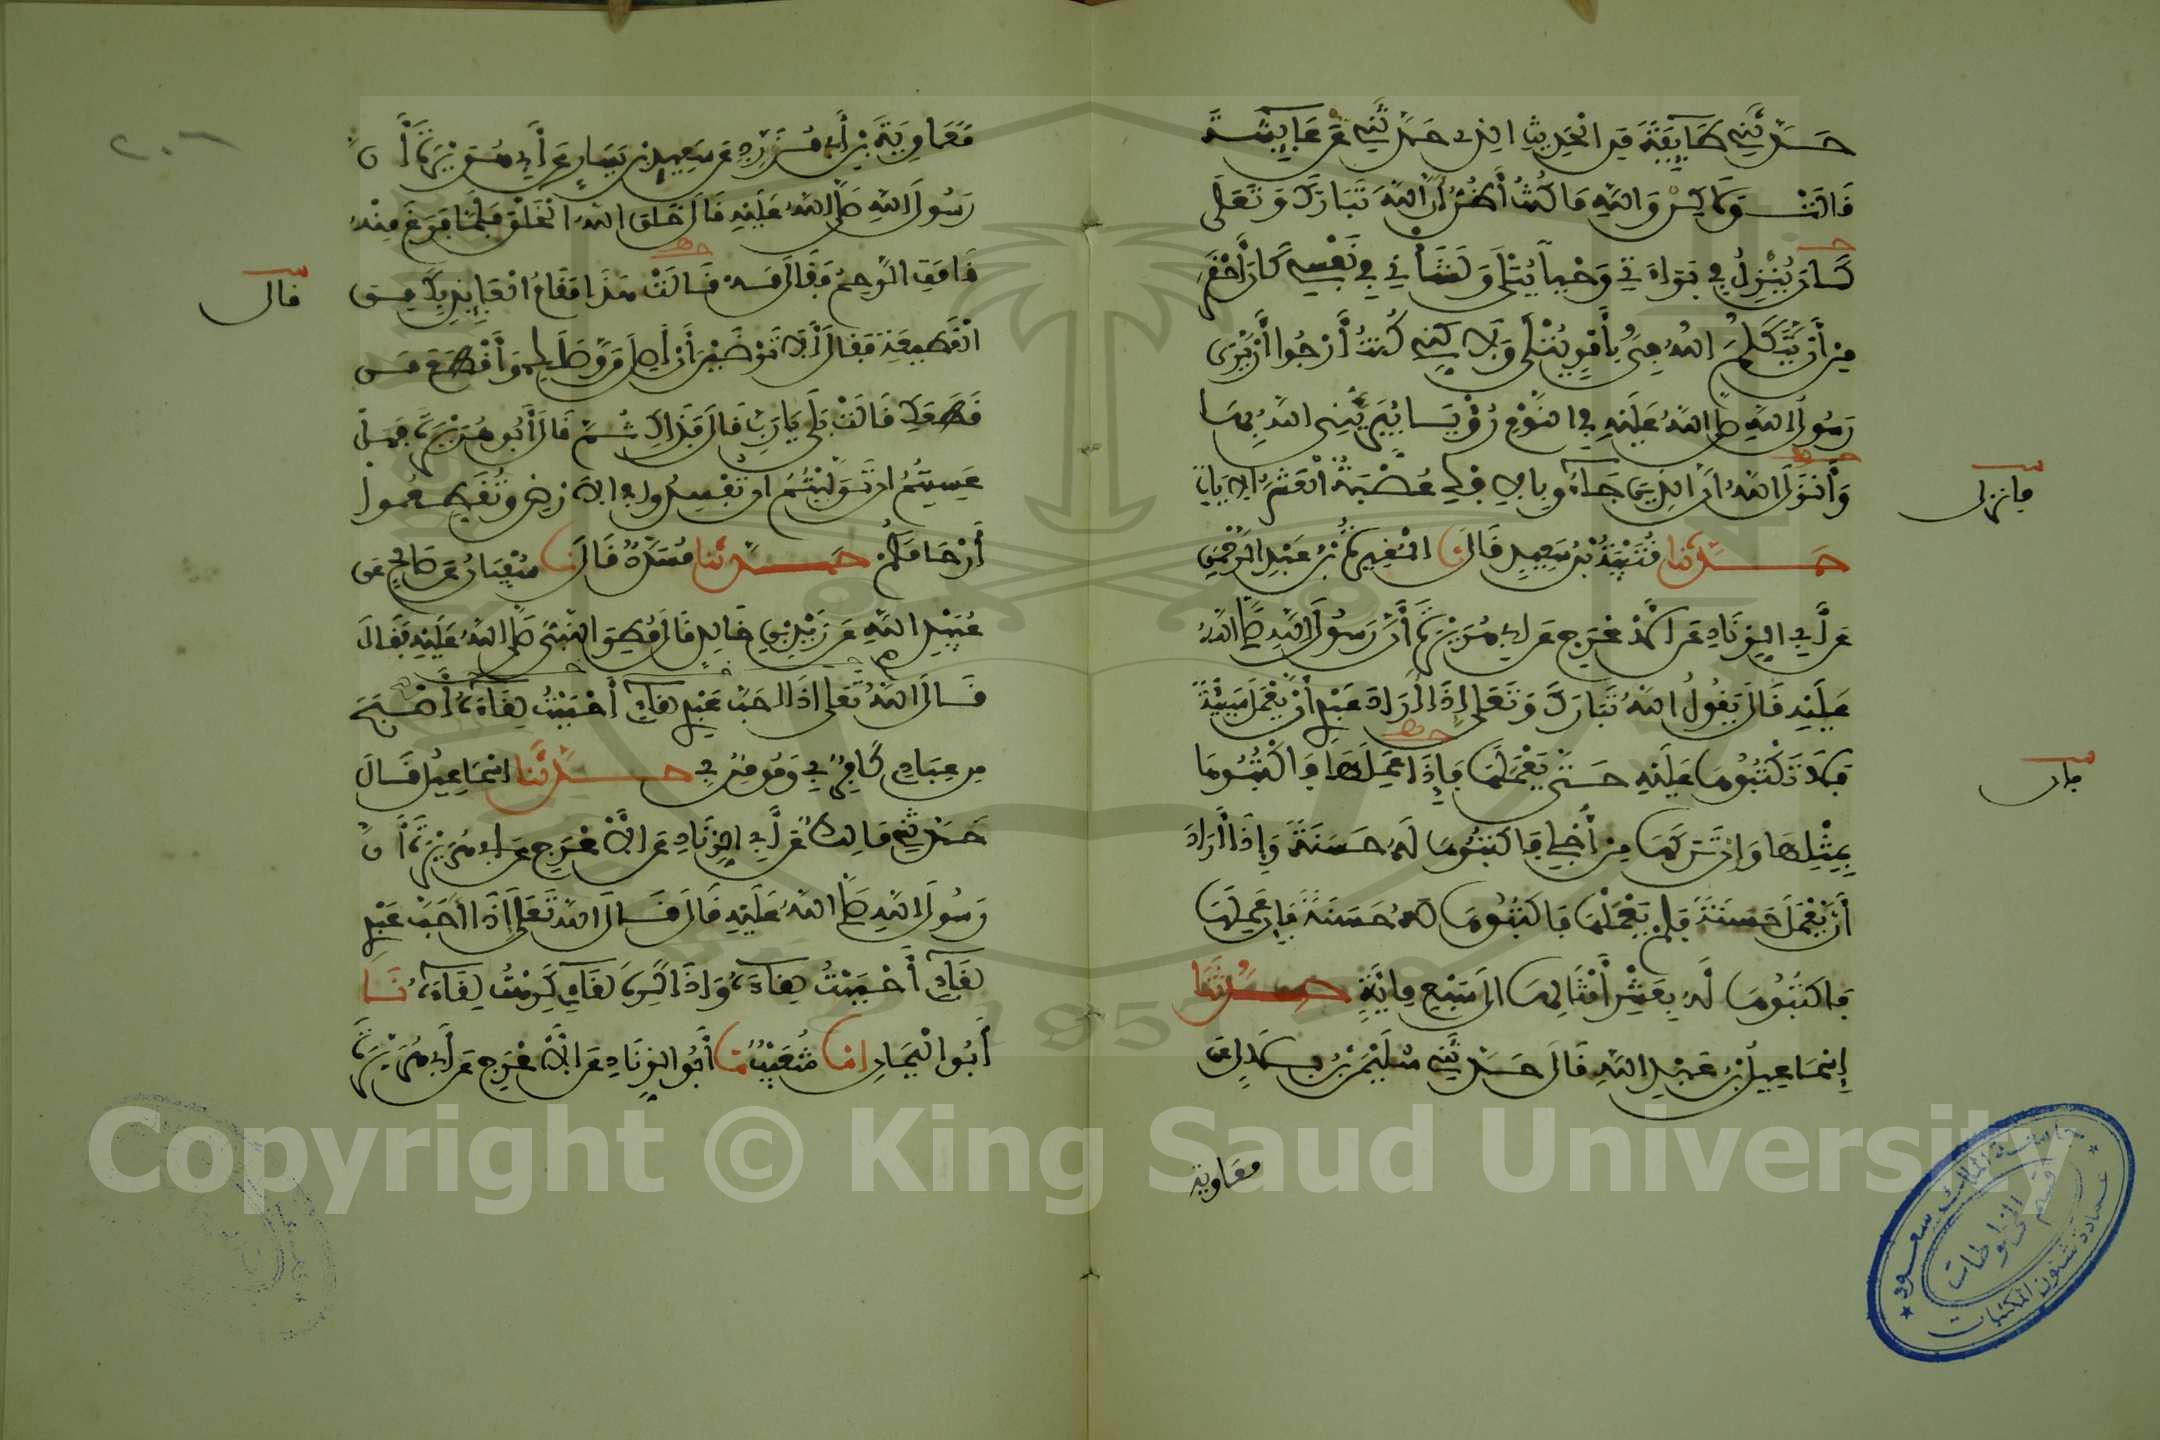 حَدَّثَنِي طَايِفَةً مِنَ الْحَدِيثِ الذِي حَدَّثَنِي عَنْ عَايِشَةَ
قَالَتْ وَلَاكِنْ وَاللَّهِ مَا كُنْتُ أَظُنُّ أَنَّ اللَّهَ تَبَارَكَ وَتَعَلَى
كَانَ يُنْزِلُ فِي بَرَاءَتِي وَحْياً يُتْلَى وَلَشَأْنِي فِي نَفْسِي كَانَ أَحْقَرَ
مِنْ أَنْ يَتَكَلَّمَ اللَّهُ فِيَّ بِأَمْرٍ يُتْلَى وَلَاكِنِّي كُنْتُ أَرْجُوا أَنْ يَرَى
رَسُولُ اللَّهِ صَلَّى اللَّهُ عَلَيْهِ فِي النَّوْمِ رُؤْيَا يُبَرِّئُنِي اللَّهُ بِهَا
وَأَنْزَلَ اللَّهُ إنَّ الذِينَ جَآءُو بِالإِفْكِ عُصْبَةٌ الْعَشْرَ الآيَاتِ
حَدَّثَنَا قُتَيْبَةُ بْنُ سَعِيدٍ قَالَ نا الْمُغِيرَةُ بْنُ عَبْدِ الرَّحْمَنِ
عَنْ أَبِي الزِّنَادِ عَنِ الأَعْرَجِ عَنْ أَبِي هُرَيْرَةَ أَنَّ رَسُولَ اللَّهِ صَلَّى اللَّهُ
عَلَيْهِ قَالَ يَقُولُ اللَّهُ تَبَارَكَ وَتَعَلَى إذَا أَرَادَ عَبْدِي أَنْ يَعْمَلَ سَيِّئَةً
فَلَا تَكْتُبُوهَا عَلَيْهِ حَتَّى يَعْمَلَهَا فَإِذَا عَمِلَهَا فَاكْتُبُوهَا
بِمِثْلِهَا وَإنْ تَرَكَهَا مِنْ أَجْلِي فَاكْتُبُوهَا لَهُ حَسَنَةً وَإِذَا أَرَادَ
أَنْ يَعْمَلَ حَسَنَةً فَلَمْ يَعْمَلْهَا فَاكْتُبُوهَا لَهُ حَسَنَةً فَإِنْ عَمِلَهَا
فَاكْتُبُوهَا لَهُ بِعَشْرِ أَمْثَالِهَا الَى سَبْعِ مِائَةٍ حَدَّثَنَا
إِسْمَاعِيلُ بْنُ عَبْدِ اللَّهِ قَالَ حَدَّثَنِي سُلَيْمَنُ بْنُ بِلَالٍ عَنْ
معاوية
فأنزل
فإن
مُعَاوِيَةَ بْنِ أَبِي مُزَرِّدٍ عَنْ سَعِيدِ بْنِ يَسَارٍ عَنْ أَبِي هُرَيْرَةَ أَنَّ
رَسُولَ اللَّهِ صَلَّى اللَّهُ عَلَيْهِ قَالَ خَلَقَ اللَّهُ الْخَلْقَ فَلَمَّا فَرَغَ مِنْهُ
قَامَتِ الرَّحِمُ فَقَالَ مَهْ قَالَتْ هَذَا مَقَامُ الْعَايِذِ بِكَ مِنَ
الْقَطِيعَةِ فَقَالَ أَلَا تَرْضَيْنَ أَنْ أَصِلَ مَنْ وَصَلَكِ وَأَقْطَعَ مَنْ
قَطَعَكِ قَالَتْ بَلَى يَا رَبِّ قَالَ فَذَلِكِ ثُمَّ قَالَ أَبُو هُرَيْرَةَ فَهَلْ
عَسِيتُمُ إنْ تَوَلَّيْتُمُ أَنْ تُفْسِدُوا فِي الأَرْضِ وَتُقَطِّعُوا
أَرْحَامَكُمْ حَدَّثَنَا مُسَدَّدٌ قَالَ نا سُفْيَانُ عَنْ صَالِحٍ عَنْ
عُبَيْدِ اللَّهِ عَنْ زَيْدِ بْنِ خَالِدٍ قَالَ مُطِرَ النَّبِيُّ صَلَّى اللَّهُ عَلَيْهِ فَقَالَ
قَالَ اللَّهُ تَعَلَى إذَا أَحَبَّ عَبْدِي لِقَاءِي أَحْبَبْتُ لِقَاءَهُ أَصْبَحَ
مِنْ عِبَادِي كَافِرٌ بِي وَمُومِنٌ بِي حَدَّثَنَا اسْمَاعِيلُ قَالَ
حَدَّثَنِي مَالِكٌ عَنْ أَبِي الزِّنَادِ عَنِ الأَعْرَجِ عَنْ أَبِي هُرَيْرَةَ أَنَّ
رَسُولَ اللَّهِ صَلَّى اللَّهُ عَلَيْهِ قَالَ قَالَ اللَّهُ تَعَلَى إذَا أَحَبَّ عَبْدِي
لِقَاءِي أَحْبَبْتُ لِقَاءَهُ وَإذَا كَرِهَ لِقَاءِي كَرِهْتُ لِقَاءَهُ نَا
أَبُو الْيَمَانِ انا شُعَيْبٌ نا أَبُو الزِّنَادِ عَنِ الأَعْرَجِ عَنْ أَبِي هُرَيْرَةَ
قال
٢٠٦
جامعة الملك سعود
قسم المخطوطات
عمادة شئون المكتبات
Copyright © King Saud University
1957